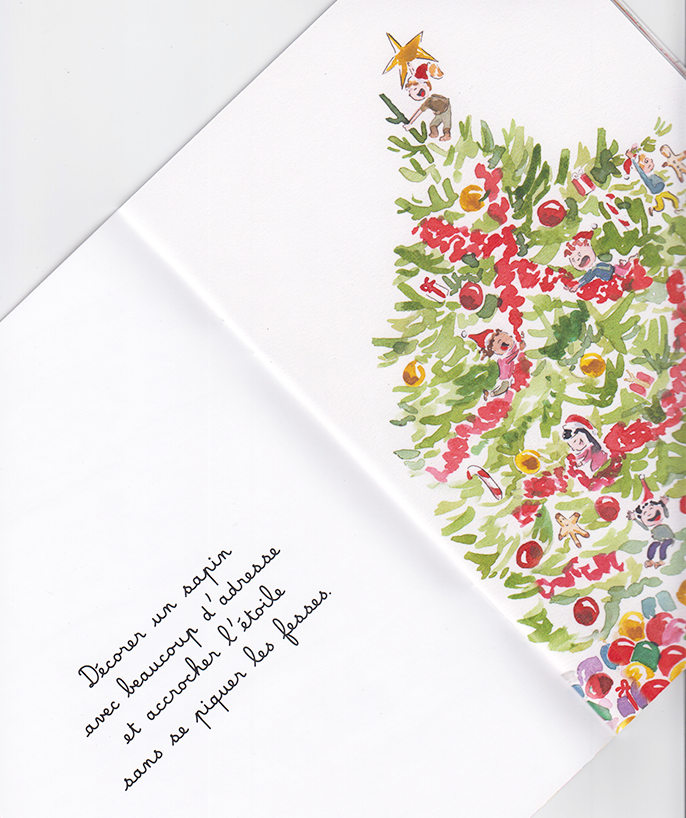 Décorer un sapin
avec beaucoup d'adresse
et accrocher l'étoile
sans se piquer les fesses.